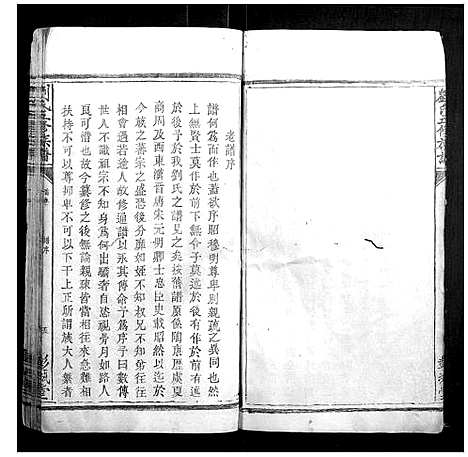 老譜序
譜何為而作也蓋欲序昭穆明尊卑別親疏之異同也然
上無賢士莫作於前下無令子莫述於後有作於前有述
於後予於我劉氏之譜見之矣按舊譜原係陶唐歷虞夏
商周以西東漢晉唐宋元明卿士忠臣史載昭然以訖于
今茲之蕃宗之盛恐後分薦如姪不知叔兄不知弟往往
相會過者若途人故修通譜以永其傳命予為序予曰數傳
世人不識祖宗不知身為何出驕奢自恣視骨月如路人
良可慨也故今纂修之後無論親疎皆當相往來急難相
扶持不可以尊抑卑不可以下干上正所謂族大人繁者
劉氏五修族譜
老譜序
彭城堂